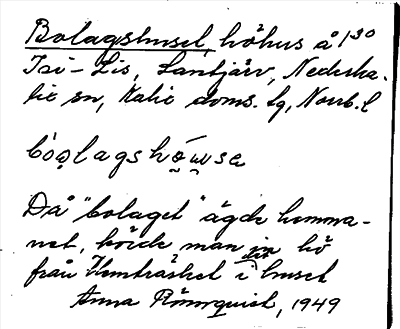 Bolagshuset, höhus å 1:30
Isi-Lis, Lantjärv, Nederka-
lix sn, Kalix doms. lg, Norrb. l
bòo̬lagshö̬́u̬se
Då "bolaget" ägde hemma-
net, körde man in hö
från Hemträsket i det huset
Anna Rönnquist, 1949